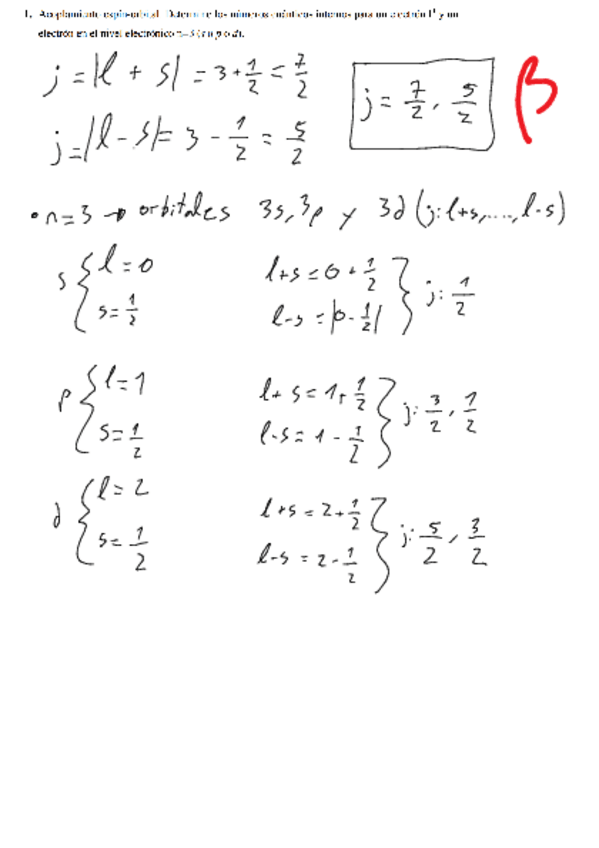 1. Acoplamiento espín-orbital. Determine los números cuánticos internos para un electrón f¹ y un
electrón en el nivel electrónico n=3 (s o p o d).
j = |l + s| = 3 + 1/2 = 7/2
j = 7/2, 5/2
β
j = |l - s| = 3 - 1/2 = 5/2
• n = 3 → orbitales 3s, 3p y 3d (j: l+s, ...., l-s)
s { l = 0
s = 1/2
l+s = 0 + 1/2
l-s = |0 - 1/2| } j: 1/2
p { l = 1
s = 1/2
l+s = 1 + 1/2
l-s = 1 - 1/2 } j: 3/2, 1/2
d { l = 2
s = 1/2
l+s = 2 + 1/2
l-s = 2 - 1/2 } j: 5/2, 3/2